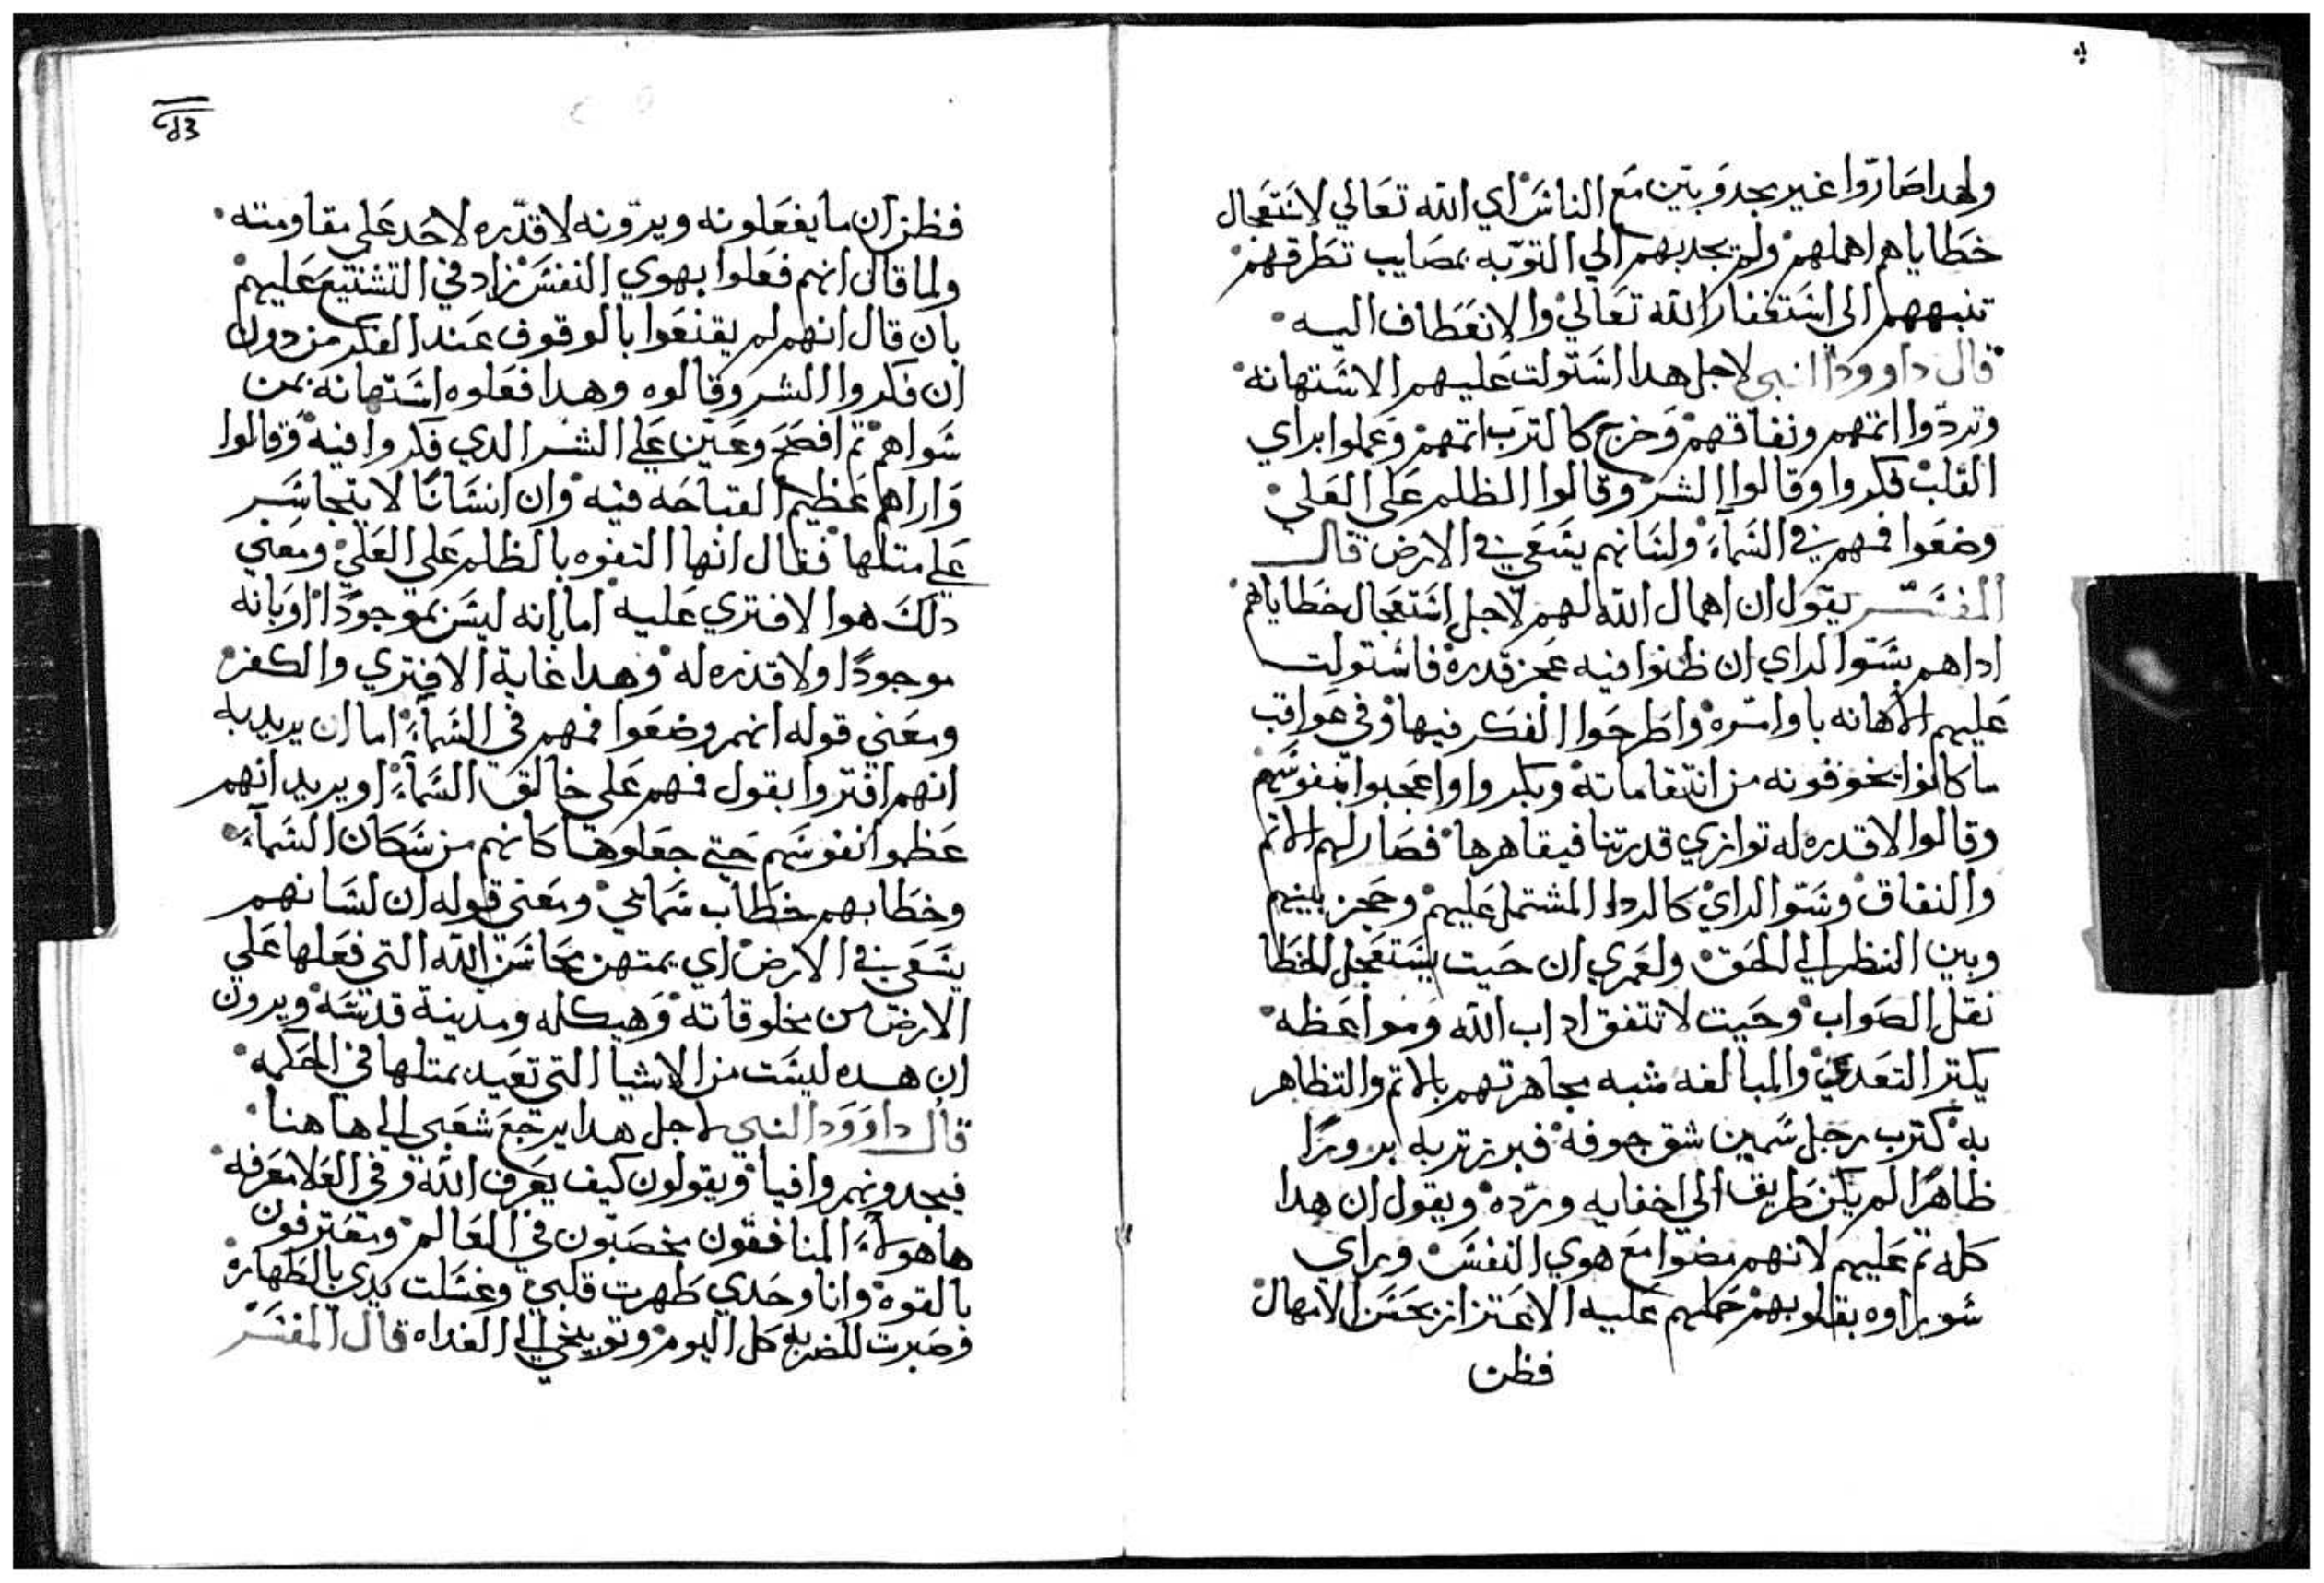 ولهدا صاروا غير مجدوبين مع الناس اي الله تعالي لاستعجال
خطاياهم اهملهم ولم يجدبهم الي التوبه بمصايب تطرقهم
تنبههم الي استغفار الله تعالي والانعطاف اليه
قال داوود النبي لاجل هدا استولت عليهم الاستهانه
وتردوا اتمهم ونفاقهم وخرج كالترب اتمهم وعملوا براي
القلب فكروا وقالوا الشر وقالوا الظلم علي العلي
وضعوا فمهم في السمآء ولسانهم يسعي في الارض قال
المفسر يقول ان اهمال الله لهم لاجل استعجال خطاياهم
اداهم بستوا الراي ان ظنوا فيه عجز قدره فاستولت
عليهم الاهانه باوامره واطرحوا الفكر فيها وفي عواقب
ما كانوا يخوفونه من انتقاماته وبكروا واعجبوا بنفوسهم
وقالوا لا قدره له توازي قدرتنا فيقاهرها فصار لهم الاتم
والنفاق وستوا الراي كالردا المشتمل عليهم وحجز بينهم
وبين النظر الي الحق ولعمري ان حيت يستعجل الخطا
نقل الصواب وحيت لا تتفق اداب الله ومواعظه
يكتر التعدي والمبالغه شبه مجاهرتهم بالاتم والتظاهر
به كترب رجل سمين شق جوفه فبرز تربه بروزا
ظاهرا لم يكن طريق الي اخفايه ورده ويقول ان هدا
كله تم عليهم لانهم مضوا مع هوي النفس وراي
سو راوه بقلوبهم حملهم عليه الاعتزاز بحسن الامهال
فظن
فظن ان ما يفعلونه ويرونه لا قدره لاحد علي مقاومته
ولما قال انهم فعلوا بهوي النفس زاد في التشنيع عليهم
بان قال انهم لم يقنعوا بالوقوف عند الفكر من دون
ان فكروا الشر وقالوه وهدا فعلوه استهانه بمن
سواهم تم افصح وعين علي الشر الدي فكروا فيه وقالوا
واراهم عظيم القباحه فيه وان انسانا لا يتجاسر
علي متلها فقال انها التفوه بالظلم علي العلي ومعني
دلك هوا الافتري عليه اما انه ليس بموجودا او بانه
موجودا ولا قدره له وهدا غاية الافتري والكفر
ومعني قوله انهم وضعوا فمهم في السمآء اما ان يريد به
انهم افتروا بقول فمهم علي خالق السمآء او يريد انهم
عظموا نفوسهم حتي جعلوها كانهم من سكان السمآء
وخطابهم خطاب سمائي ومعني قوله ان لسانهم
يسعي في الارض اي يمتهن محاسن الله التي فعلها علي
الارض من مخلوقاته وهيكله ومدينة قدسه ويرون
ان هده ليست من الاشيا التي تعيد بمتلها في الحكمه
قال داوود النبي لاجل هدا يرجع شعبي الي هاهنا
فيجدونهم وافيا ويقولون كيف يعرف الله وفي العلا معرفه
ها هولآء المنافقون مخصبون في العالم ومقترفون
بالقوه وانا وحدي طهرت قلبي وغسلت يدي بالطهاره
وصبرت للضربه كل اليوم وتوبيخي الي الغداه قال المفسر